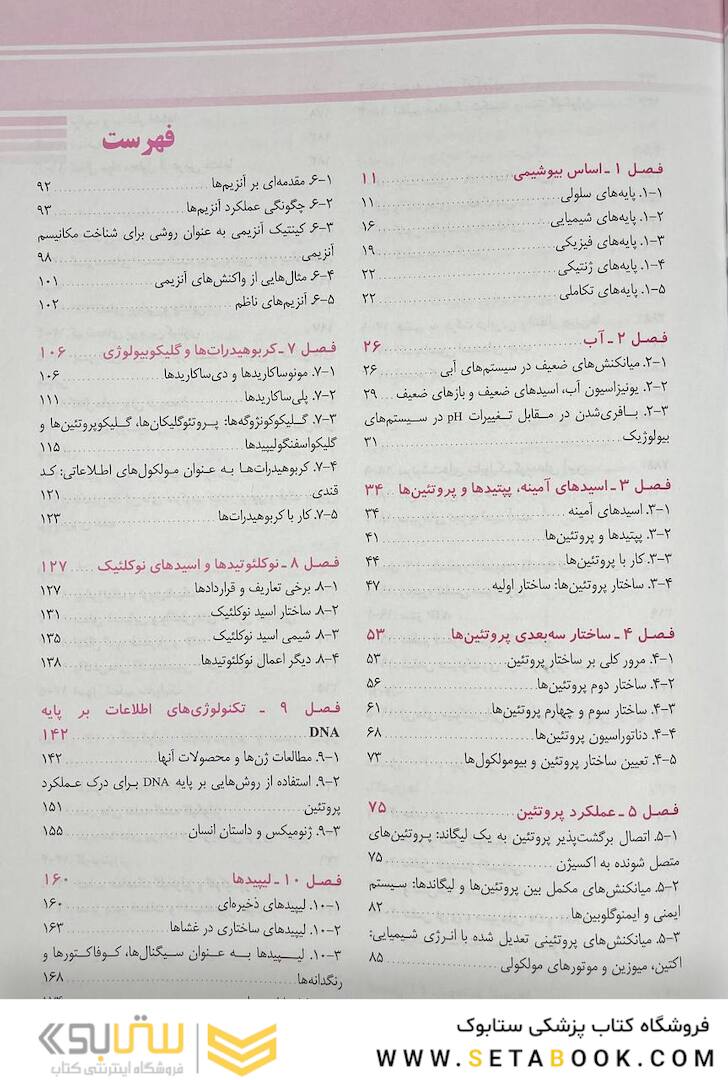 فهرست
فصل ۱ ـ اساس بیوشیمی ۱۱
۱-۱. پایه‌های سلولی ۱۱
۱-۲. پایه‌های شیمیایی ۱۶
۱-۳. پایه‌های فیزیکی ۱۹
۱-۴. پایه‌های ژنتیکی ۲۲
۱-۵. پایه‌های تکاملی ۲۲
فصل ۲ ـ آب ۲۶
۲-۱. میانکنش‌های ضعیف در سیستم‌های آبی ۲۶
۲-۲. یونیزاسیون آب، اسیدهای ضعیف و بازهای ضعیف ۲۹
۲-۳. بافری‌شدن در مقابل تغییرات pH در سیستم‌های
بیولوژیک ۳۱
فصل ۳ ـ اسیدهای آمینه، پپتیدها و پروتئین‌ها ۳۴
۳-۱. اسیدهای آمینه ۳۴
۳-۲. پپتیدها و پروتئین‌ها ۴۱
۳-۳. کار با پروتئین‌ها ۴۴
۳-۴. ساختار پروتئین‌ها: ساختار اولیه ۴۷
فصل ۴ ـ ساختار سه‌بعدی پروتئین‌ها ۵۳
۴-۱. مرور کلی بر ساختار پروتئین ۵۳
۴-۲. ساختار دوم پروتئین‌ها ۵۶
۴-۳. ساختار سوم و چهارم پروتئین‌ها ۶۱
۴-۴. دناتوراسیون پروتئین‌ها ۶۸
۴-۵. تعیین ساختار پروتئین و بیومولکول‌ها ۷۳
فصل ۵ ـ عملکرد پروتئین ۷۵
۵-۱. اتصال برگشت‌پذیر پروتئین به یک لیگاند: پروتئین‌های
متصل شونده به اکسیژن ۷۵
۵-۲. میانکنش‌های مکمل بین پروتئین‌ها و لیگاندها: سیستم
ایمنی و ایمنوگلوبین‌ها ۸۲
۵-۳. میانکنش‌های پروتئینی تعدیل شده با انرژی شیمیایی:
اکتین، میوزین و موتورهای مولکولی ۸۵
۶-۱. مقدمه‌ای بر آنزیم‌ها ۹۲
۶-۲. چگونگی عملکرد آنزیم‌ها ۹۳
۶-۳. کینتیک آنزیمی به عنوان روشی برای شناخت مکانیسم
آنزیمی ۹۸
۶-۴. مثال‌هایی از واکنش‌های آنزیمی ۱۰۱
۶-۵. آنزیم‌های ناظم ۱۰۲
فصل ۷ ـ کربوهیدرات‌ها و گلیکوبیولوژی ۱۰۶
۷-۱. مونوساکاریدها و دی‌ساکاریدها ۱۰۶
۷-۲. پلی‌ساکاریدها ۱۱۱
۷-۳. گلیکوکونژوگه‌ها: پروتئوگلیکان‌ها، گلیکوپروتئین‌ها و
گلیکواسفنگولیپیدها ۱۱۵
۷-۴. کربوهیدرات‌ها به عنوان مولکول‌های اطلاعاتی: کد
قندی ۱۲۱
۷-۵. کار با کربوهیدرات‌ها ۱۲۳
فصل ۸ ـ نوکلئوتیدها و اسیدهای نوکلئیک ۱۲۷
۸-۱. برخی تعاریف و قراردادها ۱۲۷
۸-۲. ساختار اسید نوکلئیک ۱۳۱
۸-۳. شیمی اسید نوکلئیک ۱۳۵
۸-۴. دیگر اعمال نوکلئوتیدها ۱۳۸
فصل ۹ ـ تکنولوژی‌های اطلاعات بر پایه
DNA ۱۴۲
۹-۱. مطالعات ژن‌ها و محصولات آنها ۱۴۲
۹-۲. استفاده از روش‌هایی بر پایه DNA برای درک عملکرد
پروتئین ۱۵۱
۹-۳. ژنومیکس و داستان انسان ۱۵۵
فصل ۱۰ ـ لیپیدها ۱۶۰
۱۰-۱. لیپیدهای ذخیره‌ای ۱۶۰
۱۰-۲. لیپیدهای ساختاری در غشاها ۱۶۳
۱۰-۳. لیپیدها به عنوان سیگنال‌ها، کوفاکتورها و
رنگدانه‌ها ۱۶۸
فروشگاه کتاب پزشکی ستابوک
WWW.SETABOOK.COM
ستابوک
فروشگاه اینترنتی کتاب